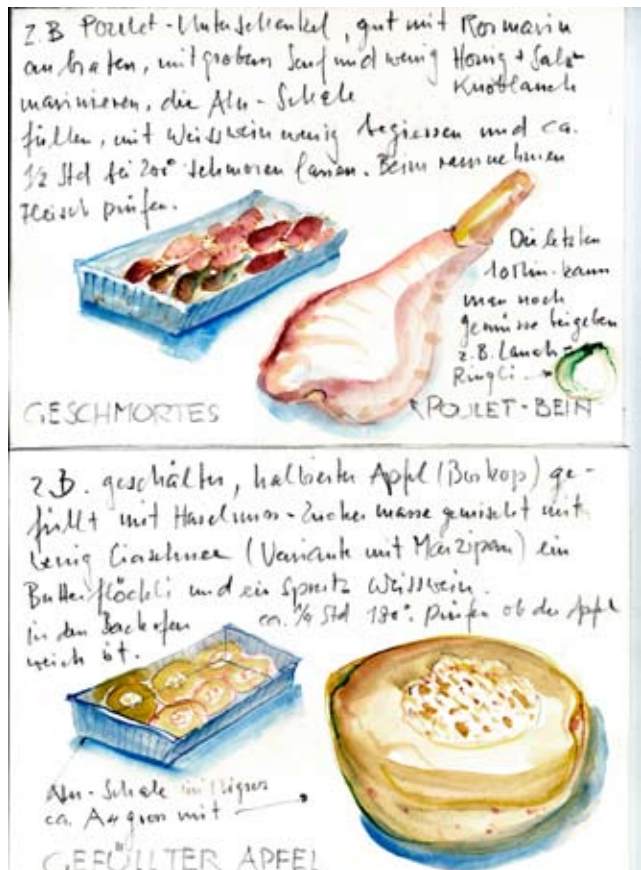 z.B Poulet-Unterschenkel, gut mit Rosmarin
anbraten, mit grobem Senf und wenig Honig + Salz
Knoblauch
marinieren, die Alu-Schale
füllen, mit Weisswein wenig begiessen und ca.
1/2 Std bei 200° schmoren lassen. Beim rausnehmen
Fleisch prüfen.
Die letzten
10 Min. kann
man noch
gemüse beigeben
z.B. Lauch-
Ringli
GESCHMORTES
POULET-BEIN
z.B. geschälter, halbierter Apfel (Boskop) ge-
füllt mit Haselnuss-Zucker masse gemischt mit
wenig Eischnee (Variante mit Marzipan) ein
Butterflöckli und ein Spritz Weisswein.
in den Backofen ca. 3/4 Std 180°. Prüfen ob der Apfel
weich ist.
Alu-Schale
ca. A4 gross mit
GEFÜLLTER APFEL